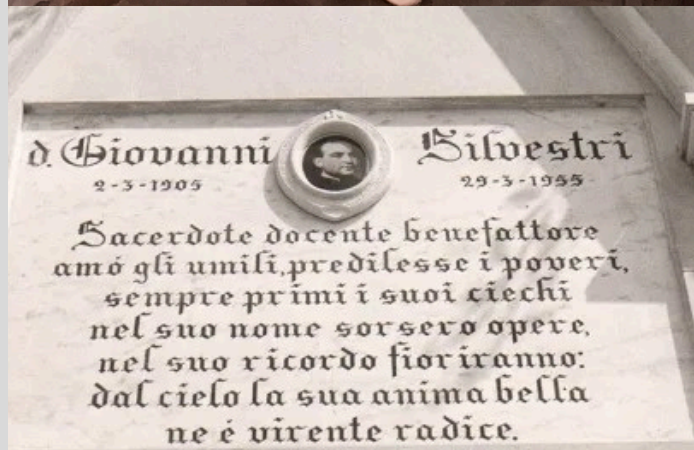 d. Giovanni Silvestri
2-3-1905 29-3-1955
Sacerdote docente benefattore
amó gli umili, predilesse i poveri,
sempre primi i suoi ciechi
nel suo nome sorsero opere,
nel suo ricordo fioriranno:
dal cielo la sua anima bella
ne é virente radice.